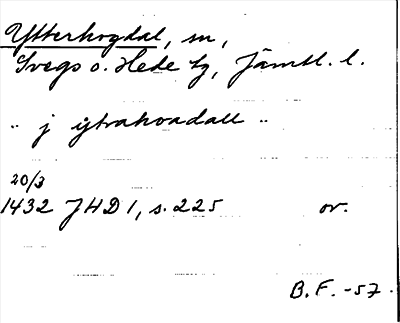 Ytterhogdal, sn,
Svegs o. Hede tg, Jämtl. l.
" j ytrahoadall "
20/3
1432 JHD 1, s. 225 or.
B. F. -57.